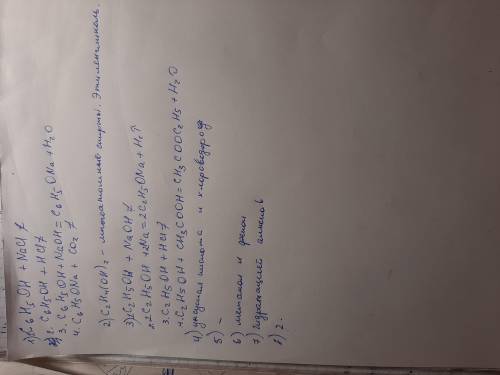 1) C6H5OH + NaCl ≠
2. C6H5OH + HCl ≠
3. C6H5OH + NaOH = C6H5ONa + H2O
4. C6H5ONa + CO2 ≠
2) C2H4(OH)2 - многоатомные спирты. Этиленгликоль.
3) 1. C2H5OH + NaOH ≠
2. 2C2H5OH + 2Na = 2C2H5ONa + H2↑
3. C2H5OH + HCl ≠
4. C2H5OH + CH3COOH = CH3COOC2H5 + H2O
4) уксусная кислота и хлороводород
5) –
6) метанол и фенол
7) гидратацией алкенов
8) 2.